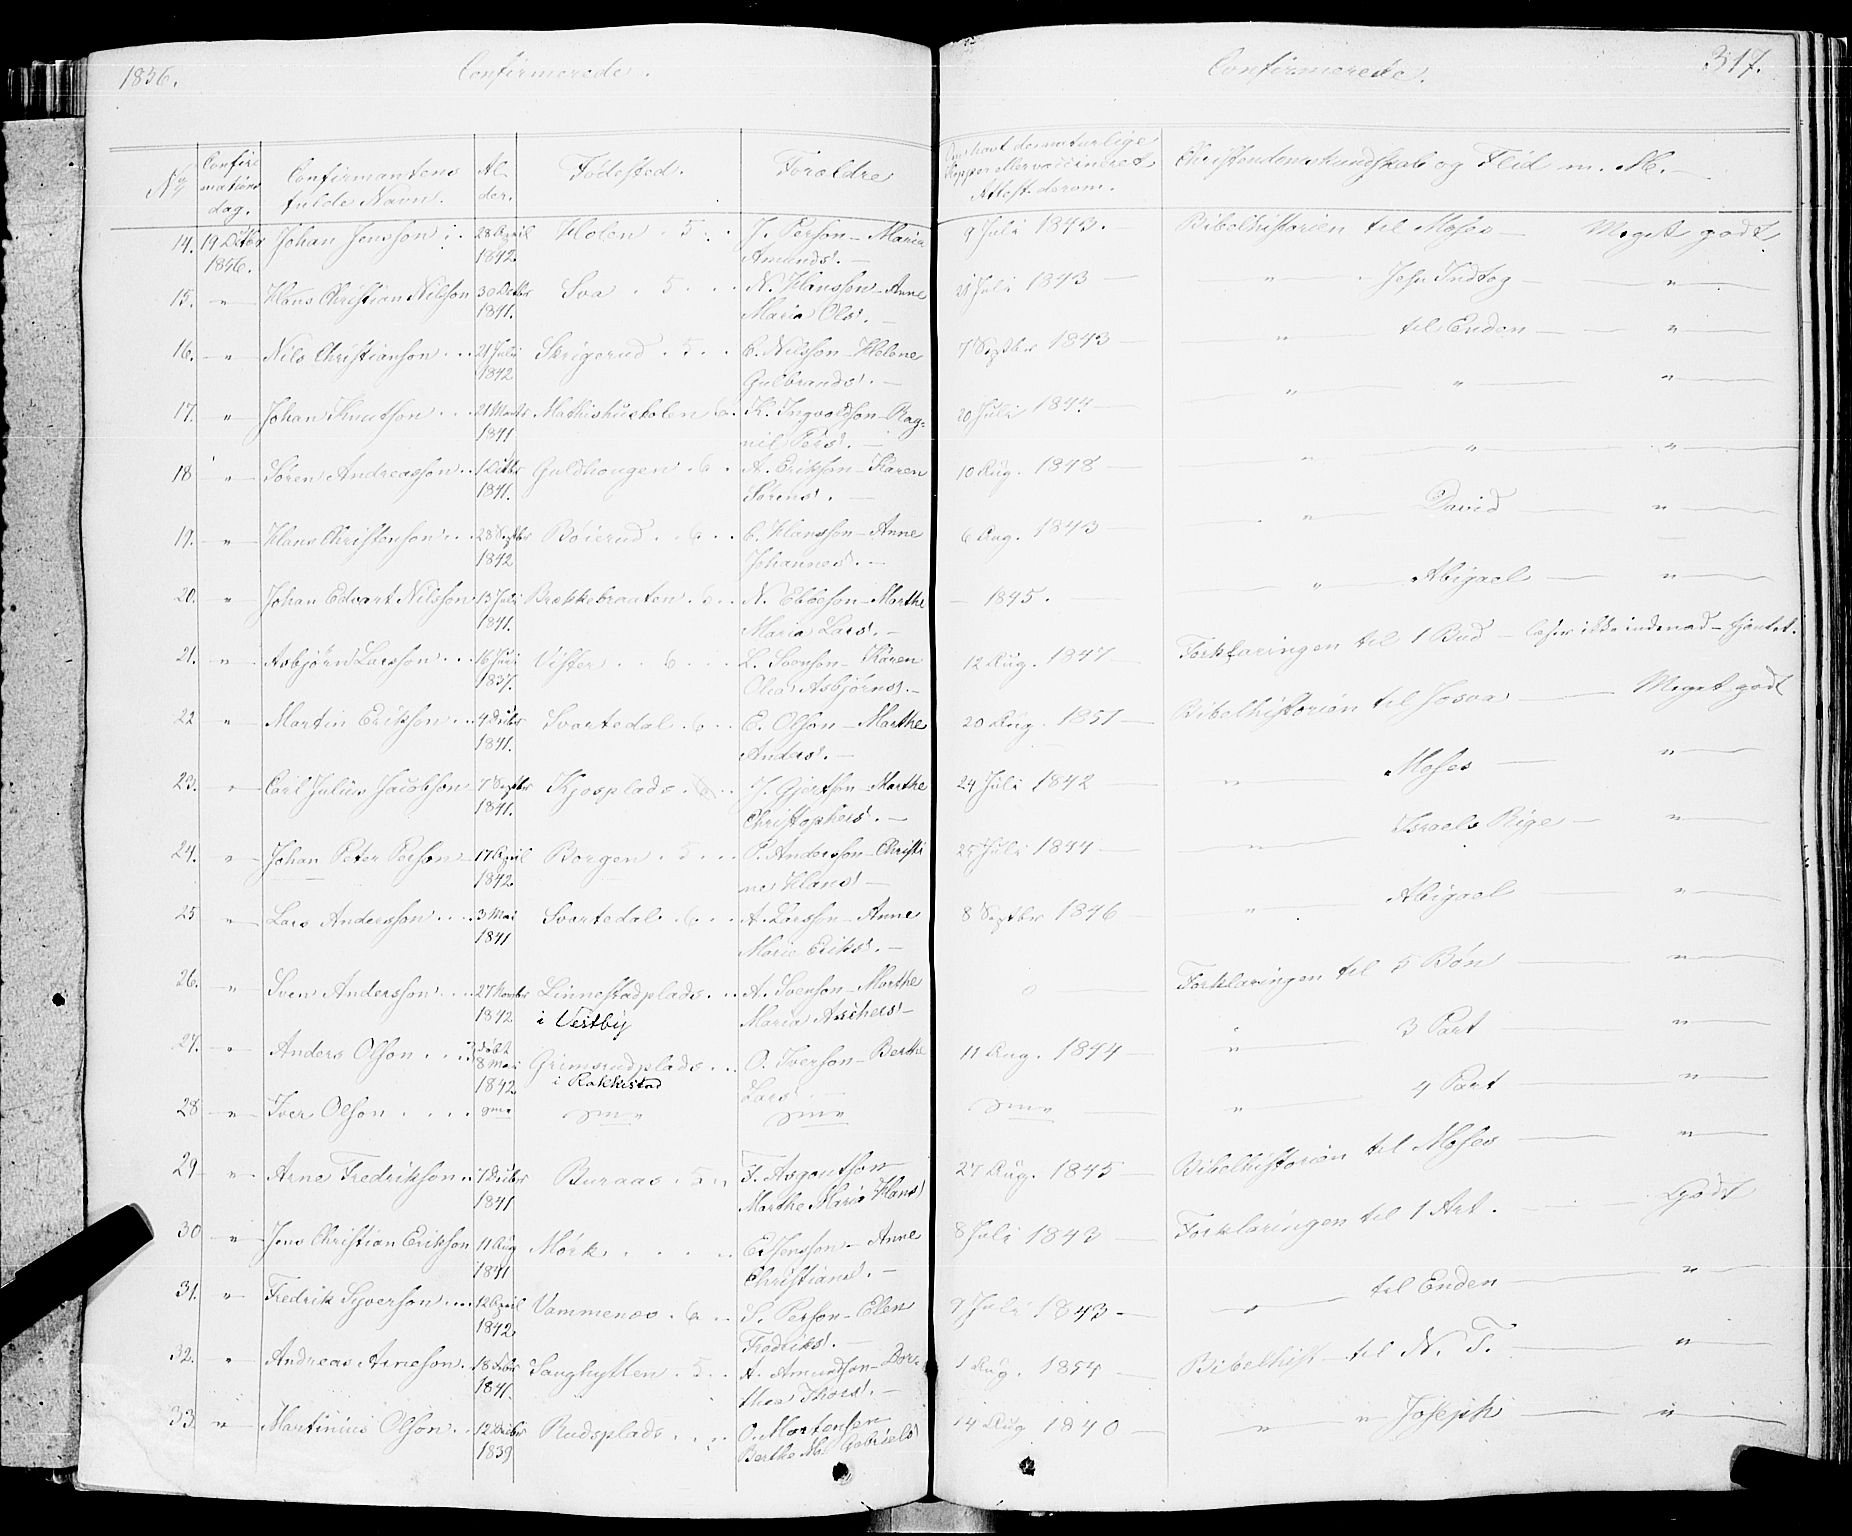 1856.
Confirmerede.
Confirmerede.
317.
No
Confirmations dag.
Confirmantens fulde Navn.
Alder.
Fødested.
Forældre
Om havt de naturlige Kopper eller vaccineret Attest derom.
Christendomskundskab og Flid m. M.
14. 19 Octbr 1856. Johan Jensson 28 April 1842. Holen 5 J. Person - Maria Amunds. 9 Juli 1843. Bibelhistorien til Moses - Meget godt
15. " Hans Christian Nilsson 30 Octbr 1841. Sva 5 N. Hansson - Anne Maria Ols. 21 Juli 1843 " Jesu Indtog "
16. " Nils Christianson 21 Juli 1842 Skrigerud 5 C. Nilsson - Helene Gulbrands. 7 Septbr 1843 " til Enden "
17. " Johan Knutson 21 Marts 1841 K. Ingvoldson - Ragnil Pers. 20 Juli 1844 " " "
18 " Søren Andreasson 1841. Guldhaugen 6 A. Erikson - Karen Sørens. 10 Aug. 1848 " " "
19. " Hans Christenson 28 Septbr 1842 Bøierud 6 C. Hansson - Anne Johannes. 6 Aug. 1843 " David "
20. " Johan Edvart Nilsson 15 Juli 1841. Brækkebraaten 6 N. Ebbeson - Marthe Maria Lars. - 1845. " Abigael "
21. " Asbjørn Larsson 1837. Vister 6 L. Svenson - Karen Olea Asbjørns. 12 Aug. 1847 Forklaringen til 1 Bud - læser ikke indenad -
22 " Martin Erikson 1841. Svartedal 6 E. Olson - Marthe Anders. 20 Aug. 1851 Bibelhistorien til Josva Meget godt
23. " Carl Julius Jacobson 7 Septbr 1841. Kjosplads J. Gjertson - Marthe Christophers. 24 Juli 1842 " Moses "
24. " Johan Peter Person 17 April 1842. Borgen 5 P. Andersson - Christine Hans. 25 Juli 1844 " Israels Rige "
25 " Lars Andersson 3 Mai 1841 Svartedal 6 A. Larsson - Anne Marie Eriks. 8 Septbr 1846 " Abigael "
26. " Sven Andersson 27 Novbr 1842 Linnestadplads i Vestby A. Svenson - Marthe Maria Forklaringen til 5 Bøn "
27. " Anders Olson døbt 8 Mai 1842. Grimsrudplads i Rakkestad O. Iverson - Berthe Lars. 11 Aug. 1844 " 3 Part "
28 " Iver Olson " 4 Part "
29 " Arne Fredrikson 1841 Buraas 5 F. Asgautson Marthe Maria Hans. 27 Aug. 1845 Bibelhistorien til Moses "
30 " Jens Christian Erikson 11 Aug 1841 Mørk E. Jensson - Anne Christians. 8 Juli 1843 Forklaringen til 1 Art. Godt
31. " Fredrik Syverson 12 April 1842. Vammenæs 6 S. Person - Elen Fredriks. 9 Juli 1843 - " til Enden "
32. " Andreas Arneson 1841. Saughytten 5 A. Amundson - Dorthea Thors. 1 Aug. 1854 Bibelhist - til N. T. "
33. " Martinius Olson 1839 Rudsplads O. Mortensen Berthe Ma Gabriels 14 Aug 1840 " " Joseph "